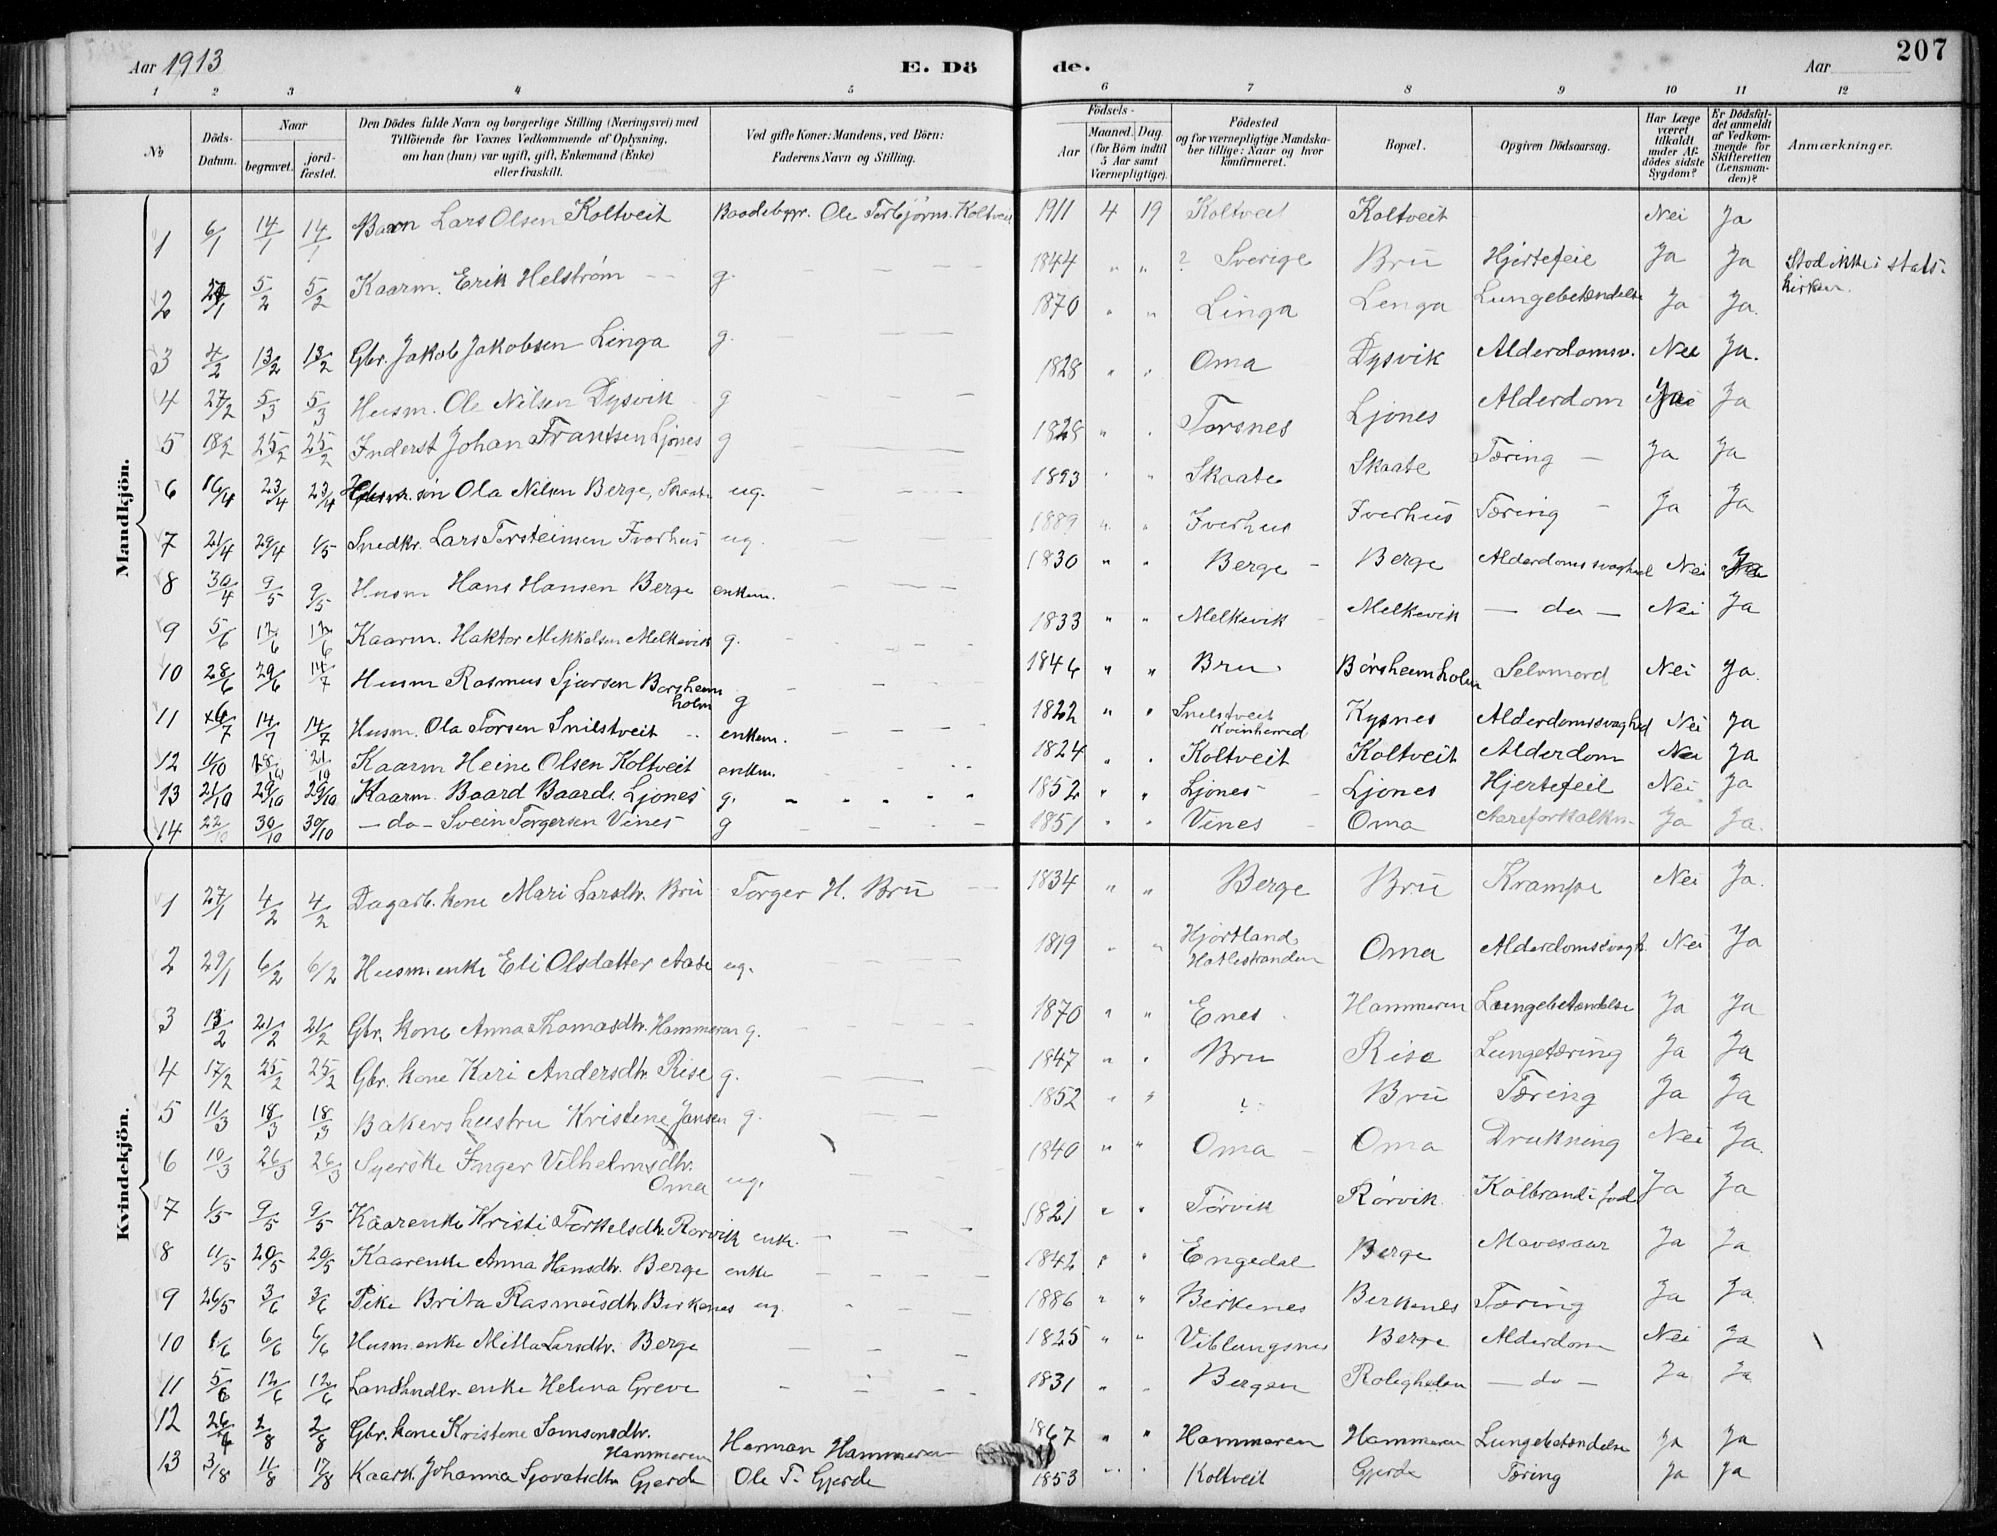 Aar 1913 E. Dö de. Aar 207
1 2 3 4 5 6 7 8 9 10 11 12
No Döds-Datum. Naar begravet. jordfæstet. Den Dödes fulde Navn og borgerlige Stilling (Næringsvei) med Tilföiende for Voxnes Vedkommende af Oplysning, om han (hun) var ugift, gift, Enkemand (Enke) eller fraskilt. Ved gifte Koner: Mandens, ved Börn: Faderens Navn og Stilling. Födsels- Aar Maaned. Dag. (for Börn indtil 5 Aar samt Værnepligtige). Födested og for værnepligtige Mandskaber tillige: Naar og hvor konfirmeret. Bopæl. Opgiven Dödsaarsag. Har Læge været tilkaldt under Afdödes sidste Sygdom? Er Dödsfaldet anmeldt af Vedkommende for Skifteretten (Lensmanden)? Anmærkninger.
Mandkjön.
1 6/1 14/1 14/1 Barn Lars Olsen Koltveit Baadebygr. Ole Torbjørns. Koltveit 1911 4 19 Koltveit Koltveit Nei Ja
2 5/2 5/2 Kaarm. Erik Helstrøm g. 1844 " " ? Sverige Bru Hjertefeil Ja Ja Stod ikke i stats-
kirken.
3 4/2 13/2 13/2 Gbr. Jakob Jakobsen Linga g. 1870 " " Linga Lenga Lungebetændelse Ja Ja.
4 27/2 5/3 5/3 Husm. Ole Nilsen Dysvik g 1828 " " Oma Dysvik Alderdomsv. Nei Ja.
5 18/2 25/2 25/2 Inderst Johan Frantsen Ljones g 1828 " " Torsnes Ljones Alderdom Ja
6 16/4 23/4 23/4 Husm. søn Ola Nilsen Berge, Skaate ug. 1893 " " Skaate Skaate Tæring – Ja Ja
7 21/4 29/4 1/5 Snedkr. Lars Torsteinsen Iverhus ug. 1889 " " Iverhus Iverhus Tæring – Ja Ja
8 30/4 9/5 9/5 Husm Hans Hansen Berge enkem. 1830 " " Berge – Berge Alderdomssvaghed Nei Ja
9 5/6 12/6 12/6 Kaarm. Haktor Mikkelsen Melkevik g. 1833 " " Melkevik – Melkevik – do – Nei Ja
10 28/6 29/6 14/7 Husm Rasmus Sjursen Borsheim
holm g 1846 " " Bru Børsheimholm Selvmord Nei Ja.
11 6/7 14/7 14/7 Husm. Ola Torsen Snilstveit enkem. 1822 " " Snilstveit
Kvinherred Kysnes Alderdomssvaghed Nei Ja
12 11/10 18/10 21/10 Kaarm Heine Olsen Koltveit enkm. 1824 " " Koltveit Koltveit Alderdom Nei Ja
13 21/10 29/10 29/10 Kaarm. Baard Baards. Ljones g. 1852 " " Ljones – Ljones Hjertefeil Nei Ja
14 22/10 30/10 30/10 – do – Svein Torgersen Vines g 1851 " " Vines – Oma Aareforkalkn. Ja Ja.
Kvindekjön.
1 27/1 4/2 4/2 Dagarb. kone Mari Larsdtr. Bru Torger H. Bru 1834 " " Berge Bru Krampe Nei Ja.
2 29/1 6/2 6/2 Husm. enke Eli Olsdatter Aase ug. 1819 " " Hjørtland
Hatlestranden Oma Alderdomssvagh. Nei Ja
3 13/2 21/2 21/2 Gbr. kone Anna Thomasdtr. Hammeren g. 1870 " " Enes Hammeren Lungebetændelse Ja Ja
4 17/2 25/2 25/2 Gbr. kone Kari Andersdtr. Rise g. 1847 " " Bru Rise Lungetæring Ja Ja
5 11/3 18/3 18/3 Bakers hustru Kristene Jansen g. 1852 " " ? Bru Tæring Ja Ja
6 10/3 26/3 26/3 Syerske Inger Vilhelmsdtr.
Oma ug. 1840 " " Oma – Oma Drukning Nei Ja.
7 1/5 9/5 9/5 Kaarenke Kristi Torkelsdtr. Rørvik enke. 1821 " " Tørvik Rørvik Kolbrand i fod Ja Ja
8 11/5 20/5 20/5 Kaarenke Anna Hansdtr. Berge enke 1842 " " Engedal Berge Mavesaar Ja Ja
9 26/5 3/6 3/6 Pike Brita Rasmusdtr. Birkenes ug. 1886 " " Birkenes Berkenes Tæring Ja Ja.
10 1/6 6/6 6/6 Husm. enke Milla Larsdtr. Berge 1825 " " Viblungsnes Berge Alderdom Nei Ja
11 5/6 12/6 12/6 Landhndlr. enke Helena Greve 1831 " " Bergen Roligheden – do – Ja Ja
12 2/8 2/8 Gbr. kone Kristene Samsonsdtr.
Hammeren Herman Hammeren 1867 " " Hammeren Hammeren Lungebetændelse Ja Ja
13 3/8 11/8 17/8 Kaark. Johanna Sjovatsdtr. Gjerde Ole T. Gjerde 1853 " " Koltveit Gjerde Tæring Ja Ja